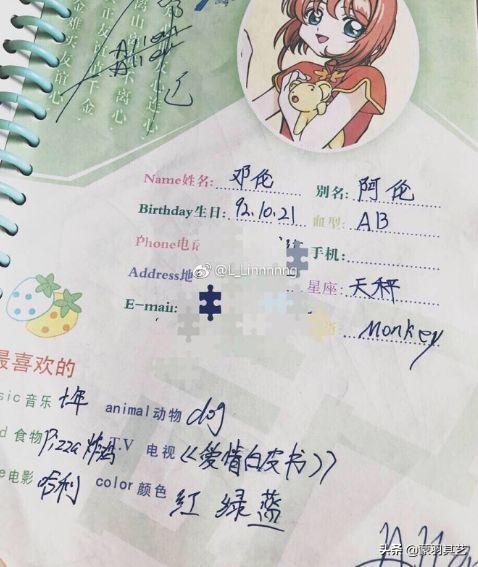 Name姓名: 邓伦 别名: 阿伦
Birthday生日: 92.10.21 血型: AB
Phone电 手机:
@L_Linnnnng
Address地 星座: 天秤
E-mail: Monkey
最喜欢的
sic 音乐 十年 animal动物 dog
d 食物 Pizza 炸鸡 T.V 电视 《爱情白皮书》
e电影 哈利 color颜色 红 绿 蓝
头条 @蒙羽其艺